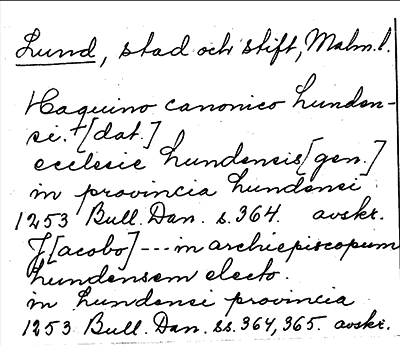 Lund, stad och stift, Malm.l.
Haquino canonico Lunden-
si. + [dat.]
ecclesie Lundensis [gen.]
in provincia Lundensi
1253 Bull. Dan. s. 364. avskr.
J[acobo] --- in archiepiscopum
Lundensem electo.
in Lundensi provincia
1253 Bull. Dan. ss. 364, 365. avskr.